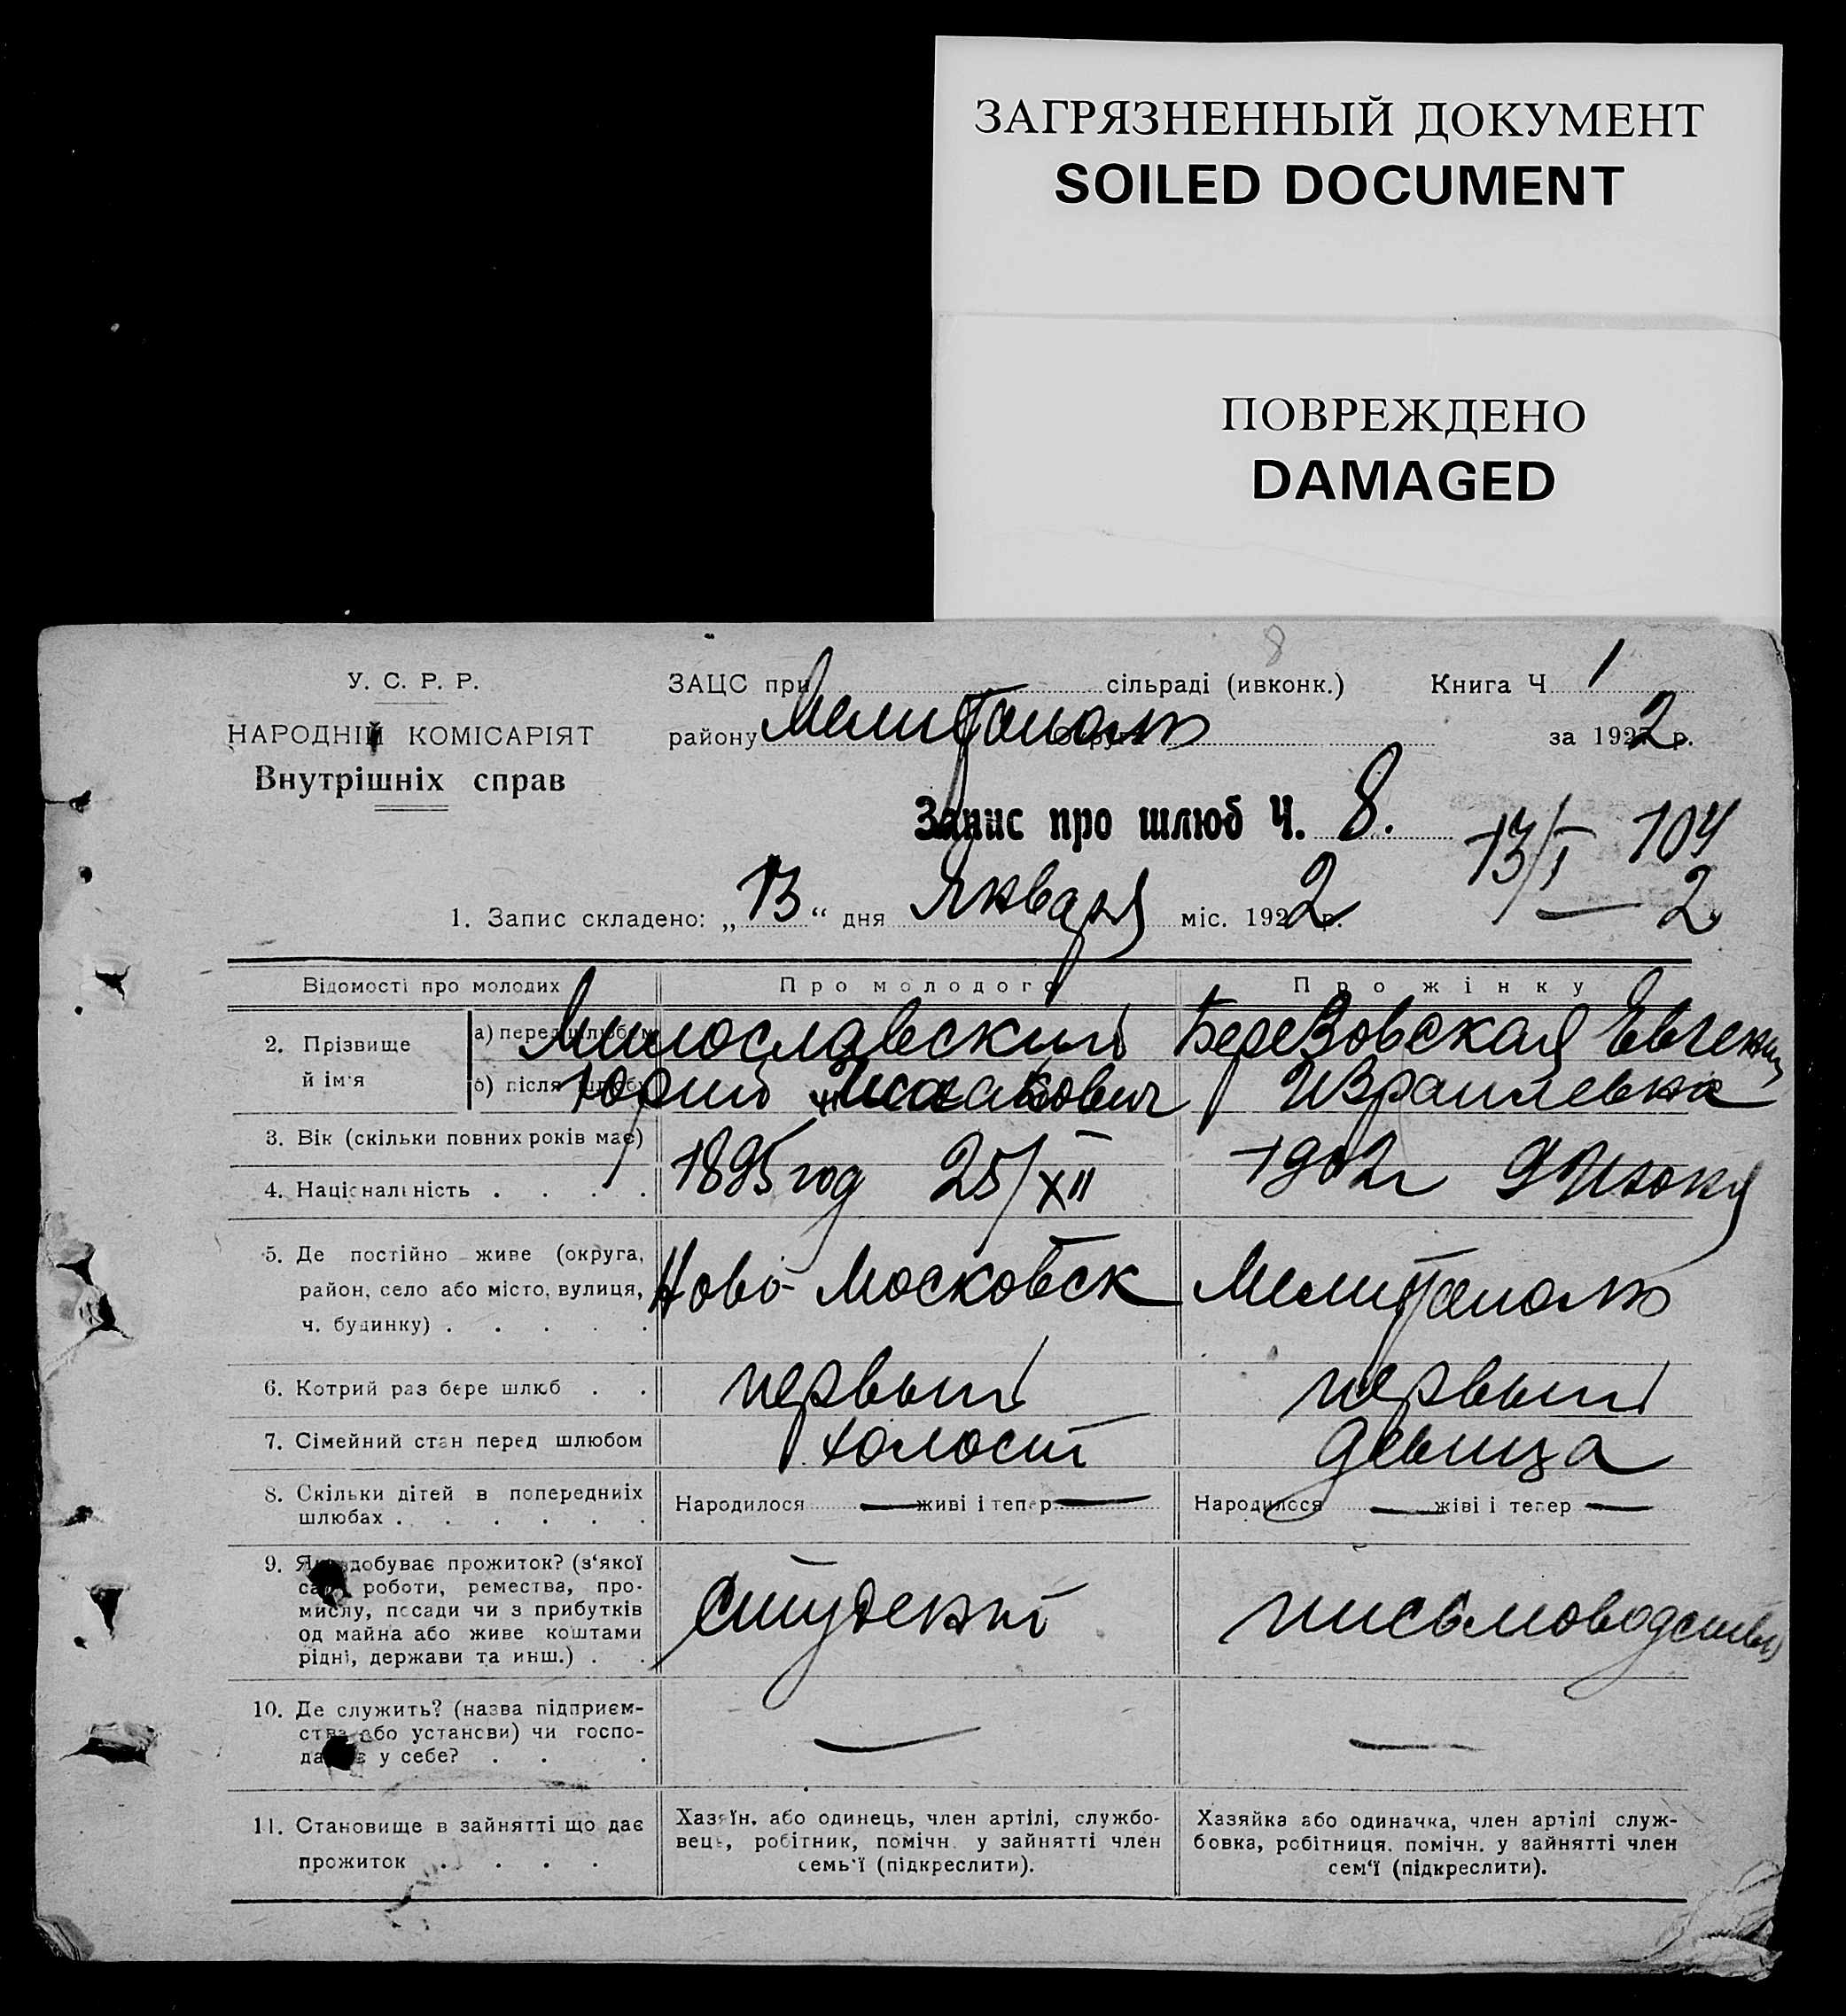 ЗАГРЯЗНЕННЫЙ ДОКУМЕНТ
SOILED DOCUMENT
ПОВРЕЖДЕНО
DAMAGED
8
У. С. Р. Р.
НАРОДНІЙ КОМІСАРІЯТ
Внутрішніх справ
ЗАЦС при сільраді (ивконк.) Книга Ч 1
району Мелитополь за 1922 р.
Запис про шлюб Ч. 8.
13/I 104
2
1. Запис складено: „13“ дня Января міс. 1922 р.
Відомості про молодих Про молодого Про жінку
2. Прізвище й ім'я
а) перед шлюбом Милославский Березовская Евгения
б) після шлюбу Юрий Исаакович Израилевна
3. Вік (скільки повних років має)
4. Національність . . . .
1895 год 25/XII 1902 г 9 Июня
5. Де постійно живе (округа,
район, село або місто, вулиця,
ч. будинку) . . . . .
Ново-Московск Мелитополь
6. Котрий раз бере шлюб . . первый первый
7. Сімейний стан перед шлюбом холост девица
8. Скільки дітей в попередніх
шлюбах . . . . . .
Народилося — живі і тепер — Народилося — жіві і тепер —
9. Як здобуває прожиток? (з'якої
саме роботи, ремества, про-
мислу, посади чи з прибутків
од майна або живе коштами
рідні, держави та инш.) . .
Студент письмоводств
10. Де служить? (назва підприєм-
ства або установи) чи госпо-
дарює у себе? . . . .
— —
11. Становище в зайнятті що дає
прожиток . . . .
Хазяїн, або одинець, член артілі, службо-
вець, робітник, помічн. у зайнятті член
семь'ї (підкреслити).
Хазяйка або одиначка, член артілі служ-
бовка, робітниця, помічн. у зайнятті член
сем'ї (підкреслити).